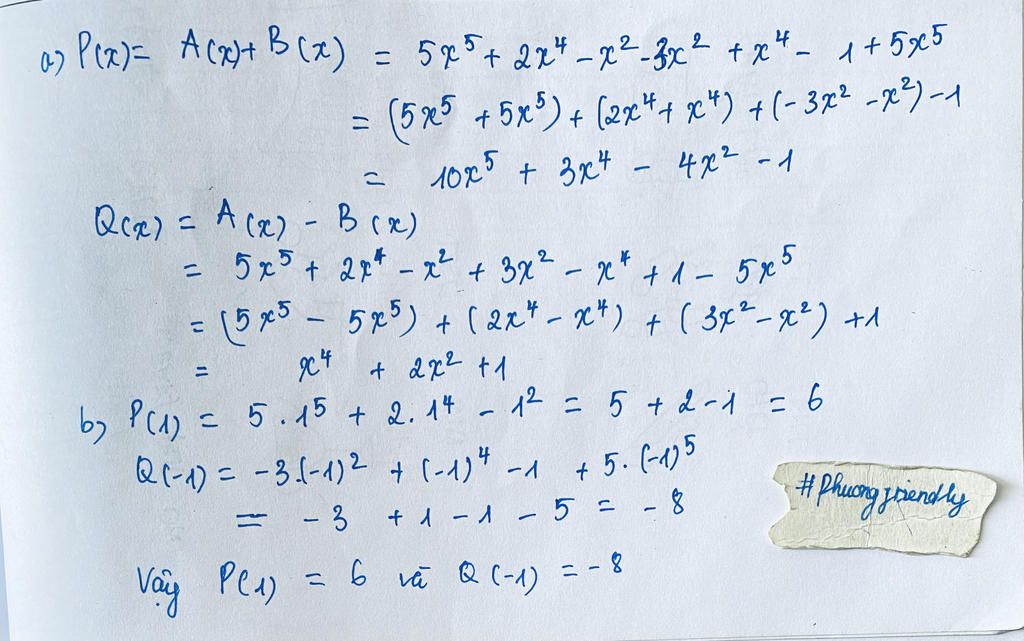 a) P(x) = A(x) + B(x) = 5x⁵ + 2x⁴ - x² - 3x² + x⁴ - 1 + 5x⁵
= (5x⁵ + 5x⁵) + (2x⁴ + x⁴) + (-3x² - x²) - 1
= 10x⁵ + 3x⁴ - 4x² - 1
Q(x) = A(x) - B(x)
= 5x⁵ + 2x⁴ - x² + 3x² - x⁴ + 1 - 5x⁵
= (5x⁵ - 5x⁵) + (2x⁴ - x⁴) + (3x² - x²) + 1
= x⁴ + 2x² + 1
b) P(1) = 5.1⁵ + 2.1⁴ - 1² = 5 + 2 - 1 = 6
Q(-1) = -3.(-1)² + (-1)⁴ - 1 + 5.(-1)⁵
= -3 + 1 - 1 - 5 = -8
#Phuongfriendly
Vậy P(1) = 6 và Q(-1) = -8